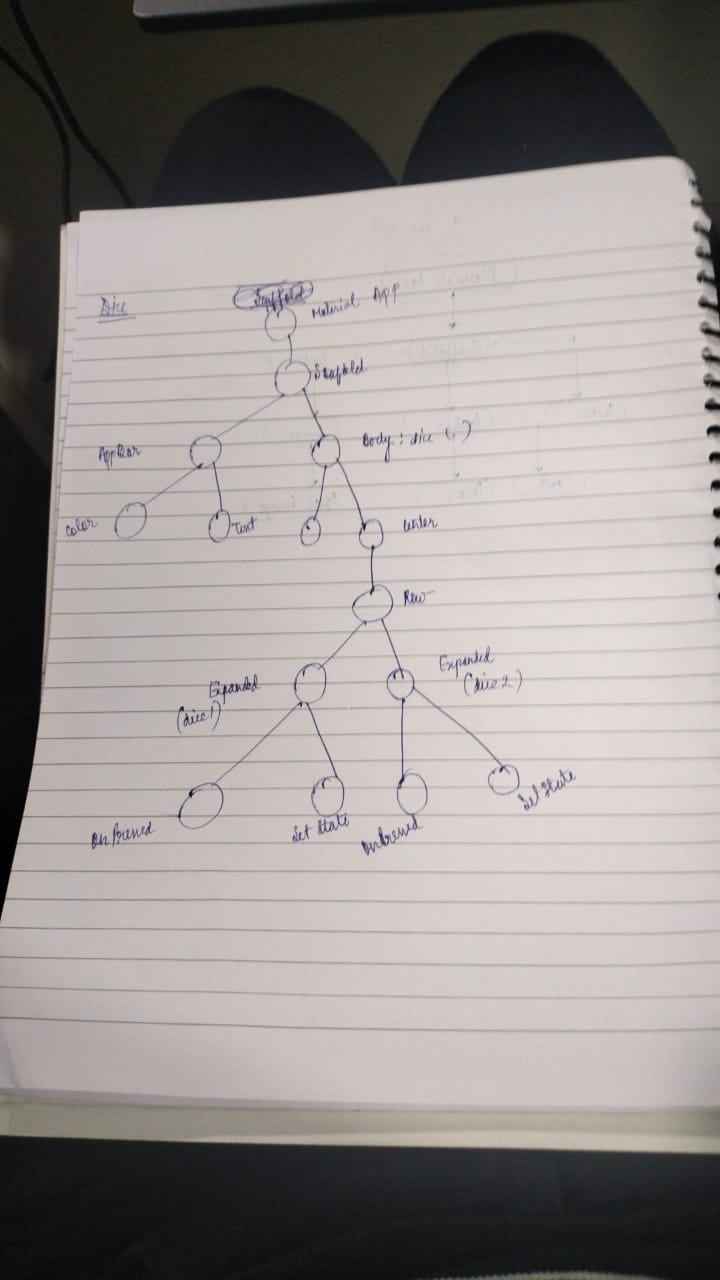 Dice
Scaffold
Material App
Scaffold
AppBar
Body : dice ( , )
Color
Text
Center
Row
Expanded
(dice 1)
Expanded
(dice 2)
On Pressed
Set State
On Pressed
Set State